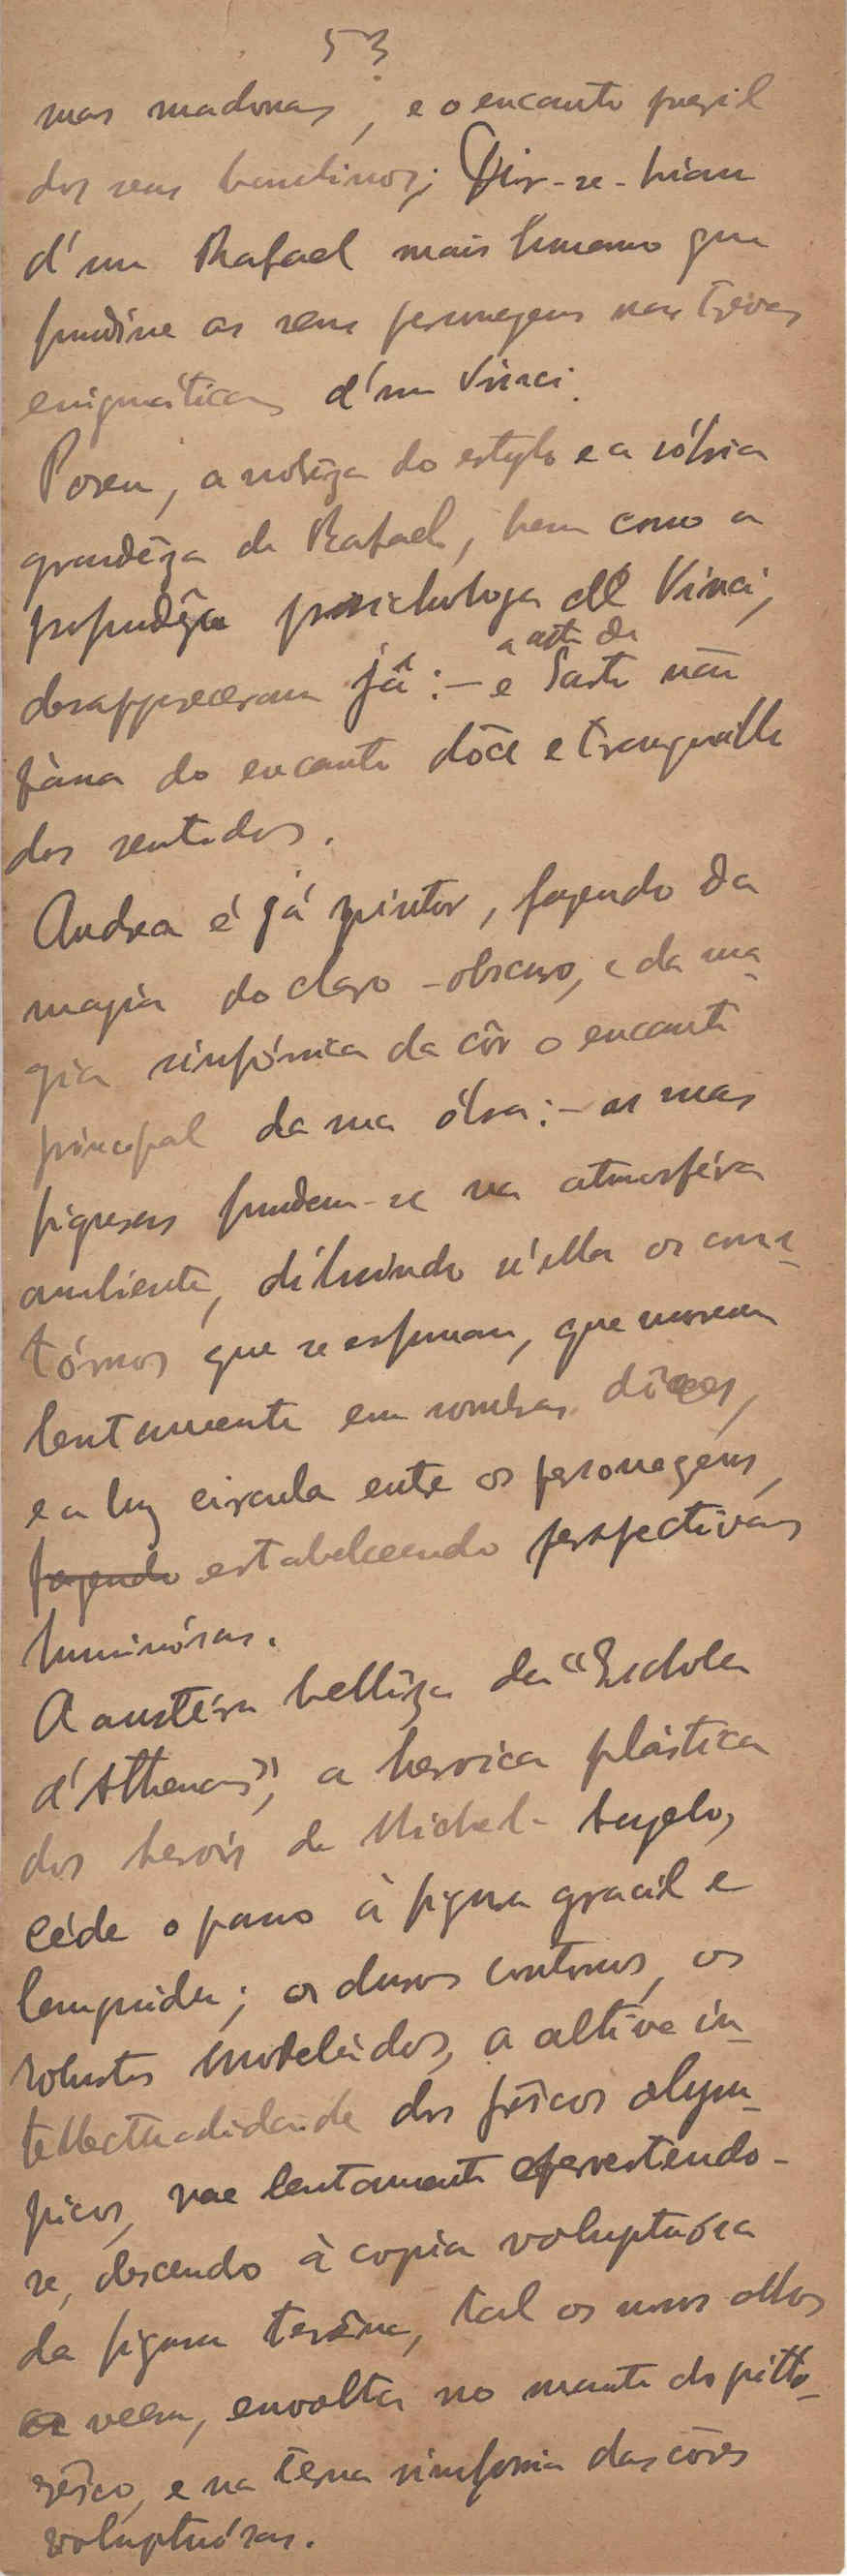 53
suas madonas, e o encanto fragil
dos seus bambinos; Dir-se-hiam
d'um Rafael mais humano que
fundisse os seus personagens nas trévas
enigmáticas d'um Vinci.
Porem, a nobrêza do estylo e a sóbria
grandêza de Rafael, bem como a
profundêza psichologa de Vinci,
desappareceram já: - e a arte de Sarto não
pássa do encanto dôce e tranquillo
dos sentidos.
Andrea é já pintor, fazendo da
magia do claro-obscuro, e da ma-
gia sinfónica da côr o encanto
principal da sua óbra: - as suas
figuras fundem-se na atmosféra
ambiente, diluindo n'ella os con-
tórnos que se esfumam, que morrem
lentamente em sombras dôces,
e a luz circula entre os personagens,
fazendo estabelecendo perspectivas
luminósas.
A austéra bellêza da "Eschola
d'Athenas", a heroica plástica
dos herois de Michel-Angelo,
céde o passo à figura gracil e
languida; os duros contornos, os
robustos modelados, a altiva in-
tellectualidade dos físicos olym-
picos, vae lentamente pervertendo-
se, descendo à copia voluptuósa
da figura terrêna, tal os seus olhos
a veem, envolta no manto do pitto-
rêsco, e na terna simfonia das côres
voluptuósas.